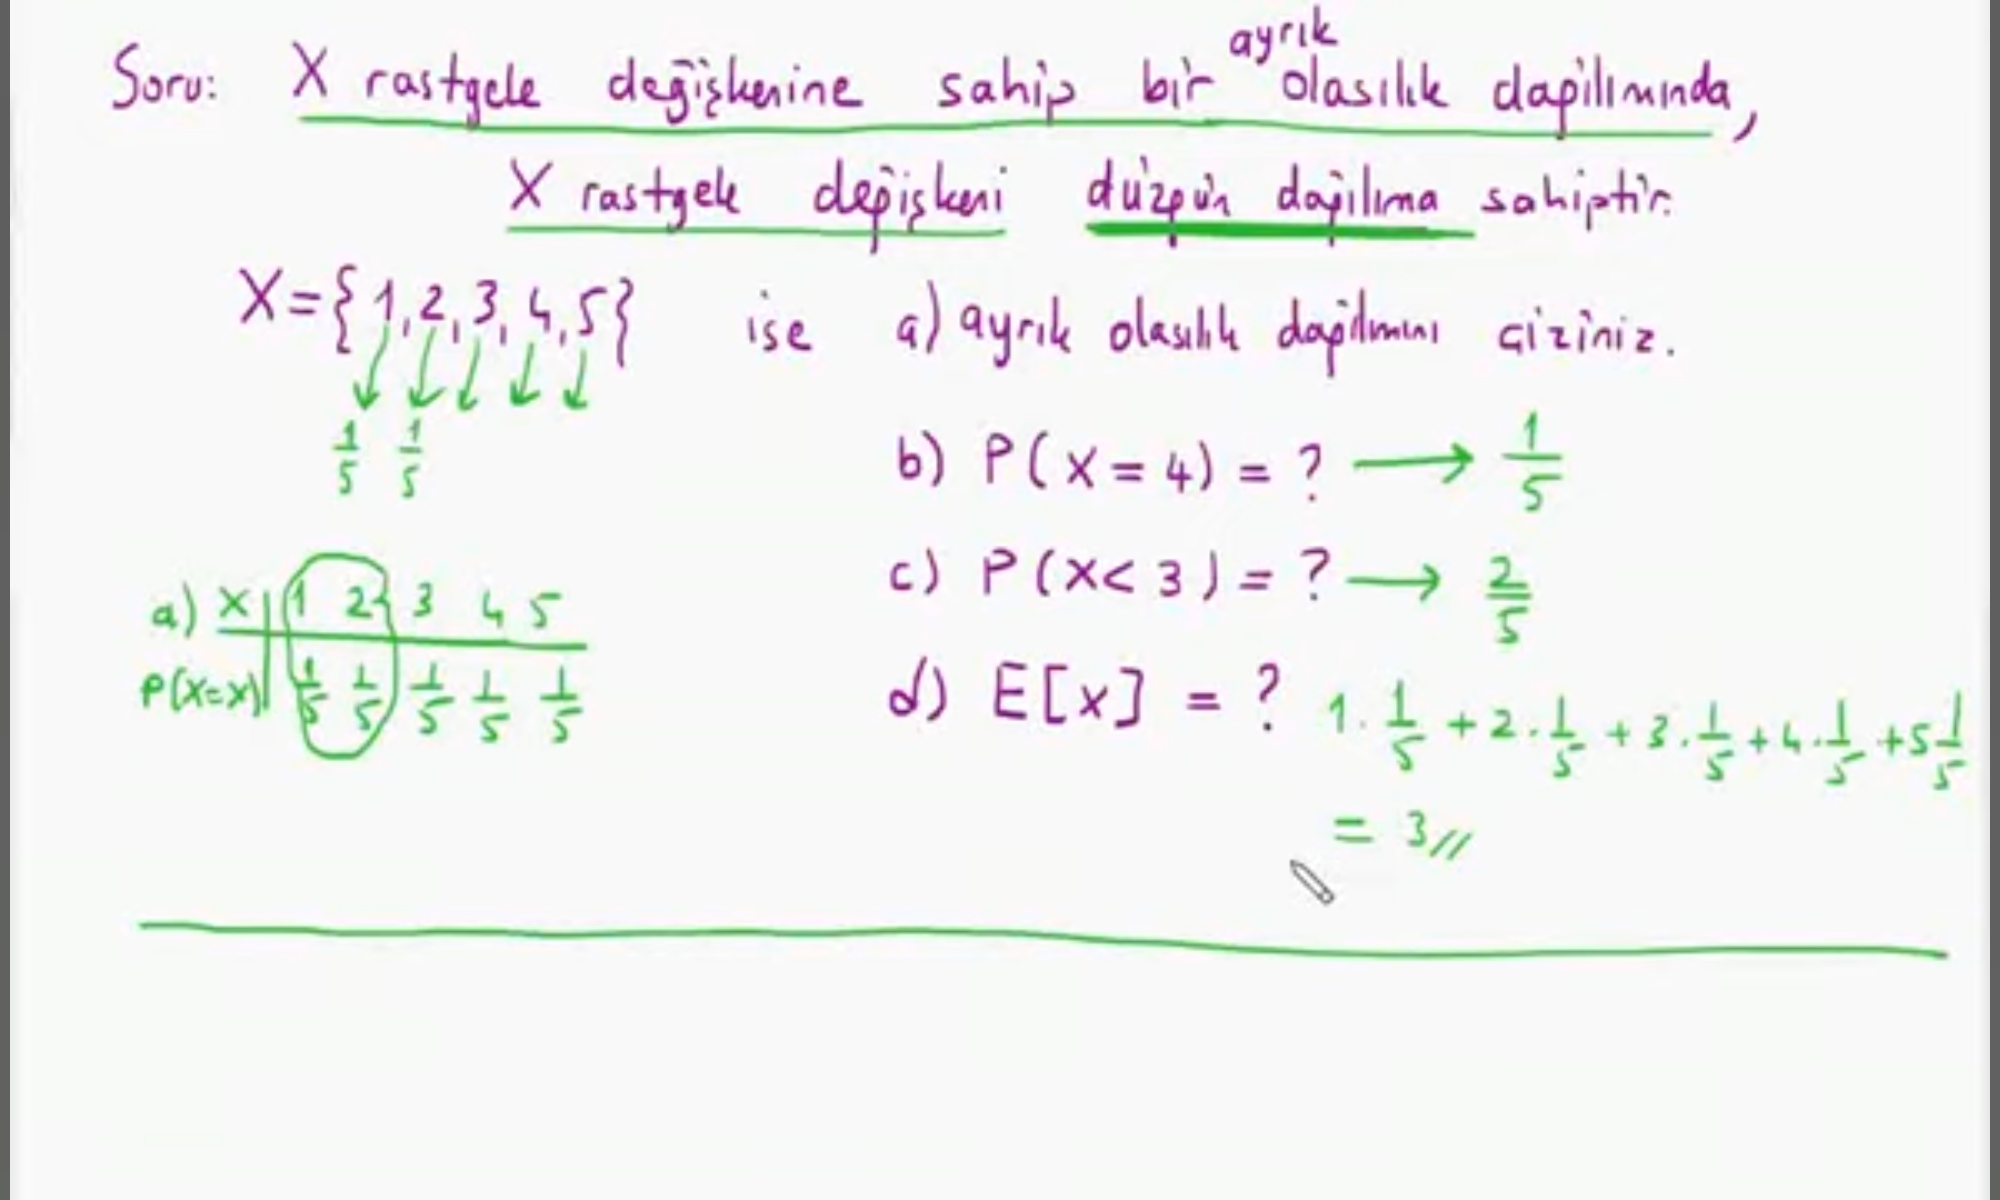 Soru: X rastgele değişkenine sahip bir ayrık olasılık dağılımında,
X rastgele değişkeni düzgün dağılıma sahiptir.
X={1,2,3,4,5} ise a) ayrık olasılık dağılımını çiziniz.
1/5 1/5
b) P(X=4) = ? → 1/5
c) P(X<3) = ? → 2/5
a) X | 1 2 3 4 5
P(X=x) | 1/5 1/5 1/5 1/5 1/5
d) E[X] = ? 1.1/5 + 2.1/5 + 3.1/5 + 4.1/5 + 5 1/5
= 3//